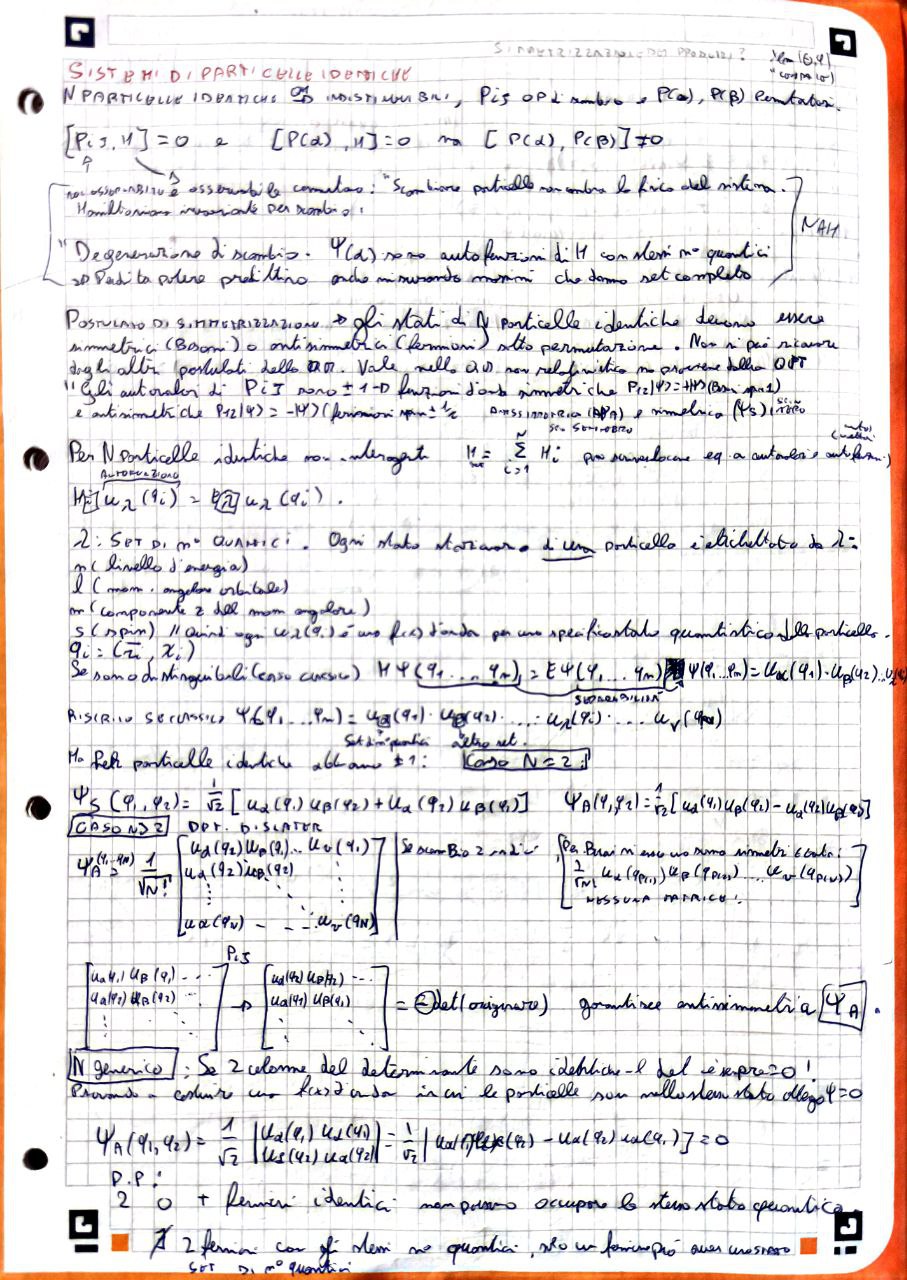 SIMMETRIZZAZIONE DEI PRODUTTI?
SISTEMI DI PARTICELLE IDENTICHE
N PARTICELLE IDENTICHE INDISTINGUIBILI, Pij OP di scambio e P(α), P(β) Permutatori.
[Pij, H] = 0 e [P(α), H] = 0 ma [P(α), P(β)] ≠ 0
è osservabile : "Scambiare particelle non cambia la fisica del sistema.
Hamiltoniana invariante per scambio!
NAH
"Degenerazione di scambio. Ψ(α) sono autofunzioni di H con stessi n° quantici
Perdita potere predittivo anche misurando che danno set completo
POSTULATO DI SIMMETRIZZAZIONE → gli stati di N particelle identiche devono essere
simmetrici (Bosoni) o antisimmetrici (fermioni) sotto permutazione. Non si può ricavare
dagli altri postulati della QM. Vale nella QM non relativistica ma proviene dalla QFT
"Gli autovalori di Pij sono ±1 → funzioni d'onda simmetriche P12|Ψ> = +|Ψ> (Bosoni spin 1)
e antisimmetriche P12|Ψ> = -|Ψ> (fermioni spin ± 1/2 (ΨA) e simmetrica (ΨS)
Per N particelle identiche non interagenti H = Σ Hi eq a autovalori e
N
i=1
AUTOFUNZIONE
Hi uλ(qi) = Eλ uλ(qi).
λ: SET DI n° QUANTICI. Ogni stato stazionario di una particella è etichettato da λ:
n (livello d'energia)
l (mom. angolare orbitale)
m (componente z del mom angolare)
s (spin) // Quindi ogni uλ(qi) è una f(x) d'onda per uno specifico stato quantistico della particella.
qi = (ri, χi)
Se sono distinguibili (caso classico) HΨ(q1 ... qn) = EΨ(q1 ... qn) Ψ(q1 ... qn) = uα(q1) · uβ(q2)
SEPARABILITÀ
RISCRIVO SE CLASSICO Ψ(q1 ... qn) = uα(q1) · uβ(q2) · ... · uλ(qi) · ... uν(qN)
altro set.
Ma per particelle identiche abbiamo ±1: Caso N=2:
ΨS(q1, q2) = 1/√2 [uα(q1) uβ(q2) + uα(q2) uβ(q1)] ΨA(q1, q2) = 1/√2 [uα(q1)uβ(q2) - uα(q2)uβ(q1)]
CASO N>2 DET. DI SLATER
ΨA(q1...qN) = 1/√N! [uα(q2) uβ(q1) ... uν(q1) Se scambio 2 indici Per Bosoni si esce una somma simmetrizzata:
uα(q2) uβ(q2) 1/√N! uα(qP(1)) uβ(qP(2)) .... uν(qP(N))
uα(qN) - - - uν(qN)] NESSUNA MATRICE!
Pij
[uα(q1) uβ(q1) ... → [uα(q2) uβ(q2) ...
uα(q2) uβ(q2) uα(q1) uβ(q1) = -det(originario) garantisce antisimmetria ΨA.
N generico : Se 2 colonne del determinante sono identiche il det è sempre = 0!
Provando a costruire una f(x) d'onda in cui le particelle son nello stesso stato ottengo Ψ=0
ΨA(q1, q2) = 1/√2 |uα(q1) uα(q1) = 1/√2 | uα(q2) - uα(q2) uα(q1)] = 0
uα(q2) uα(q2)|
P.P:
2 o + fermioni identici non possono occupare lo stesso stato quantico.
∄ 2 fermioni con gli stessi n° quantici, solo un fermione può avere uno stato
SET DI n° quantici